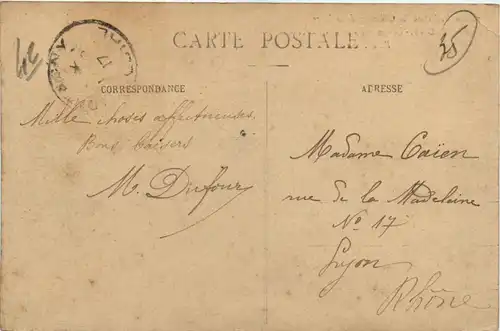 42
CARTE POSTALE
35
CORRESPONDANCE
ADRESSE
Mille choses affectueuses,
Bons baisers
M. Dufour
Madame Caïen
rue de la Madeleine
No 17
Lyon
Rhône